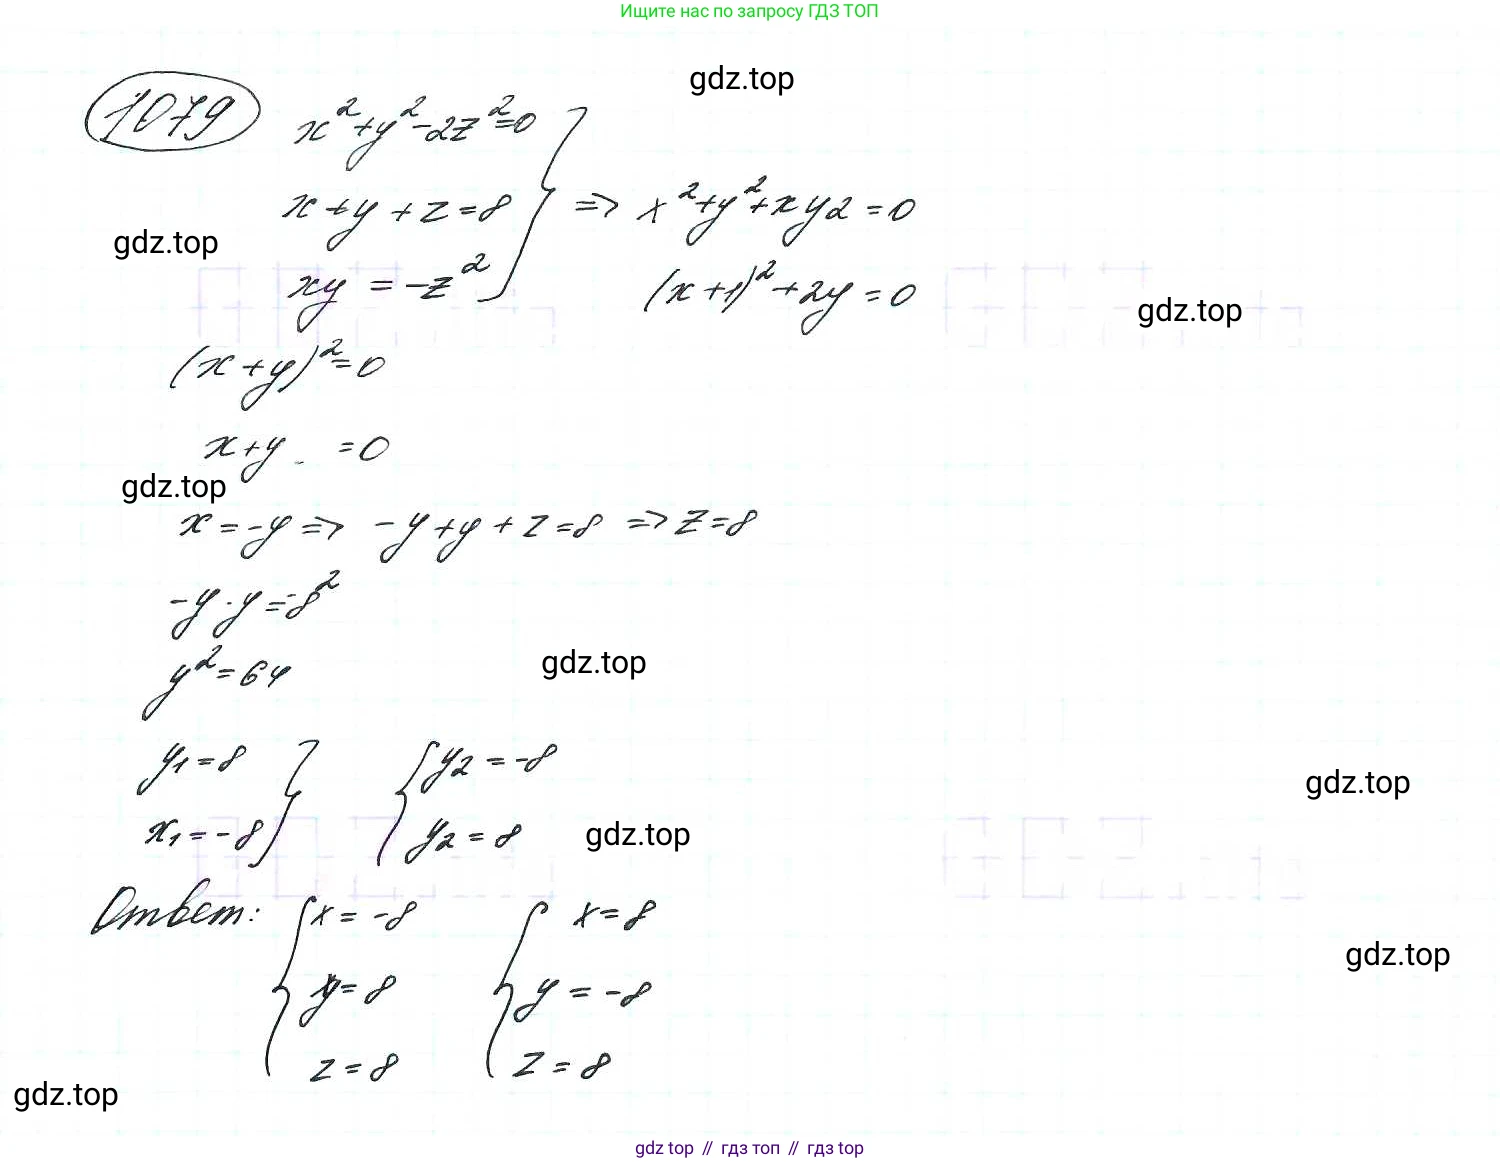 Ищите нас по запросу ГДЗ ТОП
gdz.top
1079
x²+y²-2z²=0
x+y+z=8 => x²+y²+xy2=0
gdz.top
xy=-z² (x+1)²+2y=0
gdz.top
(x+y)²=0
x+y =0
gdz.top
x=-y => -y+y+z=8 => z=8
-y·y=-8²
y²=64
gdz.top
y1=8 y2=-8
gdz.top
x1=-8 y2=8
gdz.top
Ответ: x=-8 x=8
y=8 y=-8
gdz.top
z=8 z=8
gdz.top
gdz top // гдз топ // гдз top